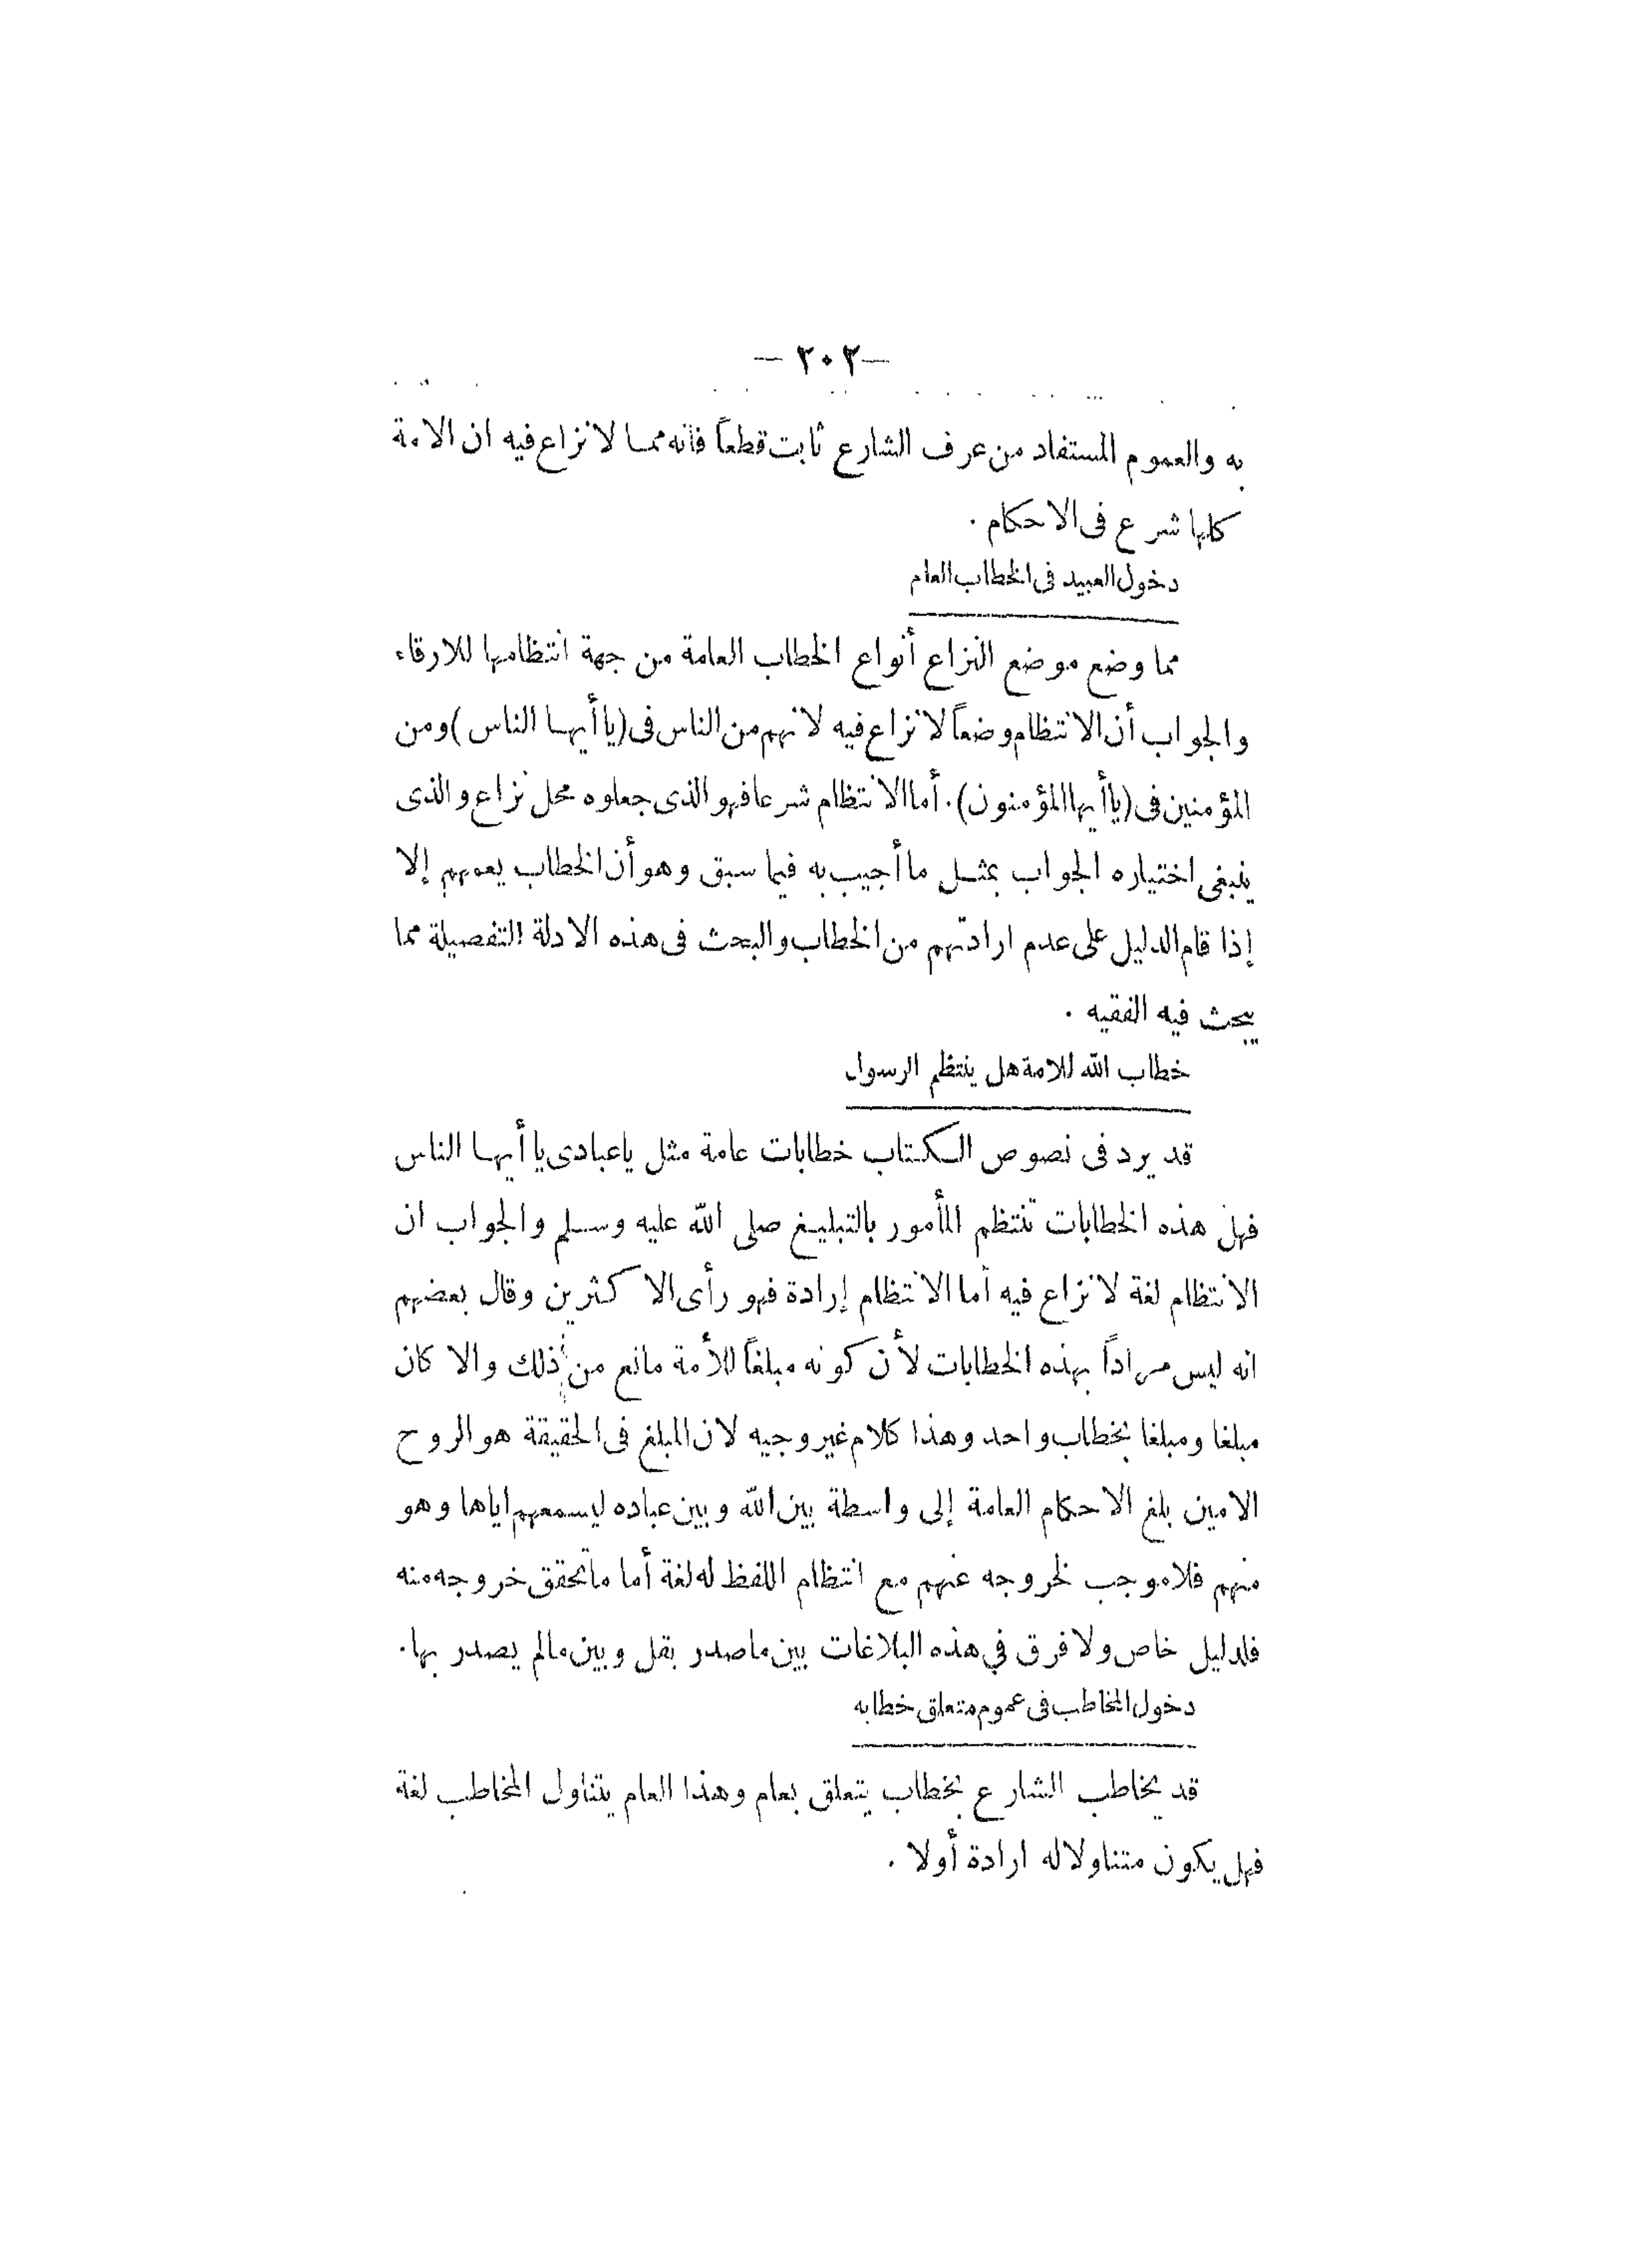 — ٢٠٢ —
به والعموم المستفاد من عرف الشارع ثابت قطعاً فانه مما لا نزاع فيه ان الامة
كلها شرع فى الاحكام .
دخول العبيد فى الخطاب العام
مما وضع موضع النزاع أنواع الخطاب العامة من جهة انتظامها للارقاء
والجواب أن الانتظام وضعاً لا نزاع فيه لانهم من الناس فى (يا أيها الناس) ومن
المؤمنين فى (يا أيها المؤمنون). أما الانتظام شرعا فهو الذى جعلوه محل نزاع والذى
ينبغى اختياره الجواب بمثل ما أجيب به فيما سبق وهو أن الخطاب يعمهم إلا
إذا قام الدليل على عدم ارادتهم من الخطاب والبحث فى هذه الادلة التفصيلة مما
يبحث فيه الفقيه .
خطاب الله للامة هل ينتظم الرسول
قد يرد فى نصوص الكتاب خطابات عامة مثل ياعبادى يا أيها الناس
فهل هذه الخطابات تنتظم المأمور بالتبليغ صلى الله عليه وسلم والجواب ان
الانتظام لغة لا نزاع فيه أما الانتظام إرادة فهو رأى الاكثرين وقال بعضهم
انه ليس مراداً بهذه الخطابات لأن كونه مبلغاً للأمة مانع من ذلك والا كان
مبلغا ومبلغا بخطاب واحد وهذا كلام غير وجيه لان المبلغ فى الحقيقة هو الروح
الامين بلغ الاحكام العامة إلى واسطة بين الله وبين عباده ليسمعهم اياها وهو
منهم فلا موجب لخروجه عنهم مع انتظام اللفظ له لغة أما ما تحقق خروجه منه
فلدليل خاص ولا فرق في هذه البلاغات بين ما صدر بقل وبين مالم يصدر بها.
دخول المخاطب فى عموم متعلق خطابه
قد يخاطب الشارع بخطاب يتعلق بعام وهذا العام يتناول المخاطب لغة
فهل يكون متناولا له ارادة أولا .